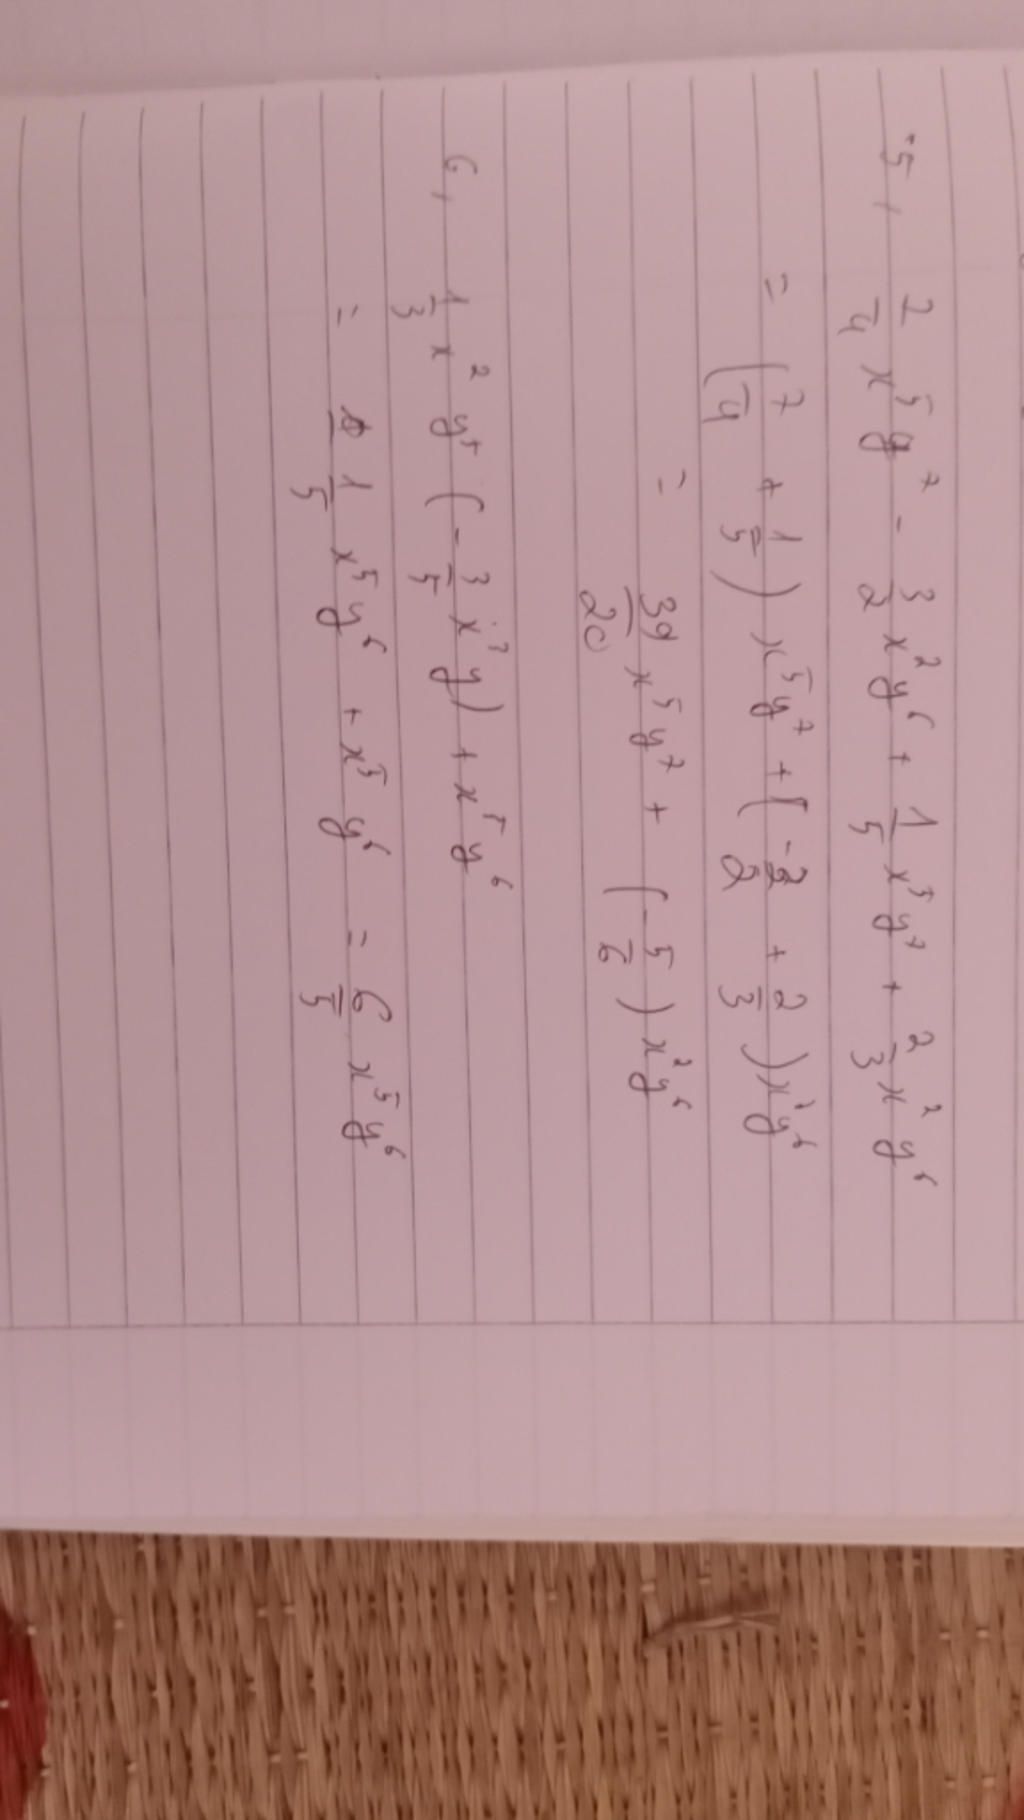 5, 7/4 x^5 y^7 - 3/2 x^2 y^6 + 1/5 x^5 y^7 + 2/3 x^2 y^6
= (7/4 + 1/5) x^5 y^7 + (-3/2 + 2/3) x^2 y^6
= 39/20 x^5 y^7 + (-5/6) x^2 y^6
6, 1/3 x^2 y^5 (-3/5 x^3 y) + x^5 y^6
= 1/5 x^5 y^6 + x^5 y^6 = 6/5 x^5 y^6